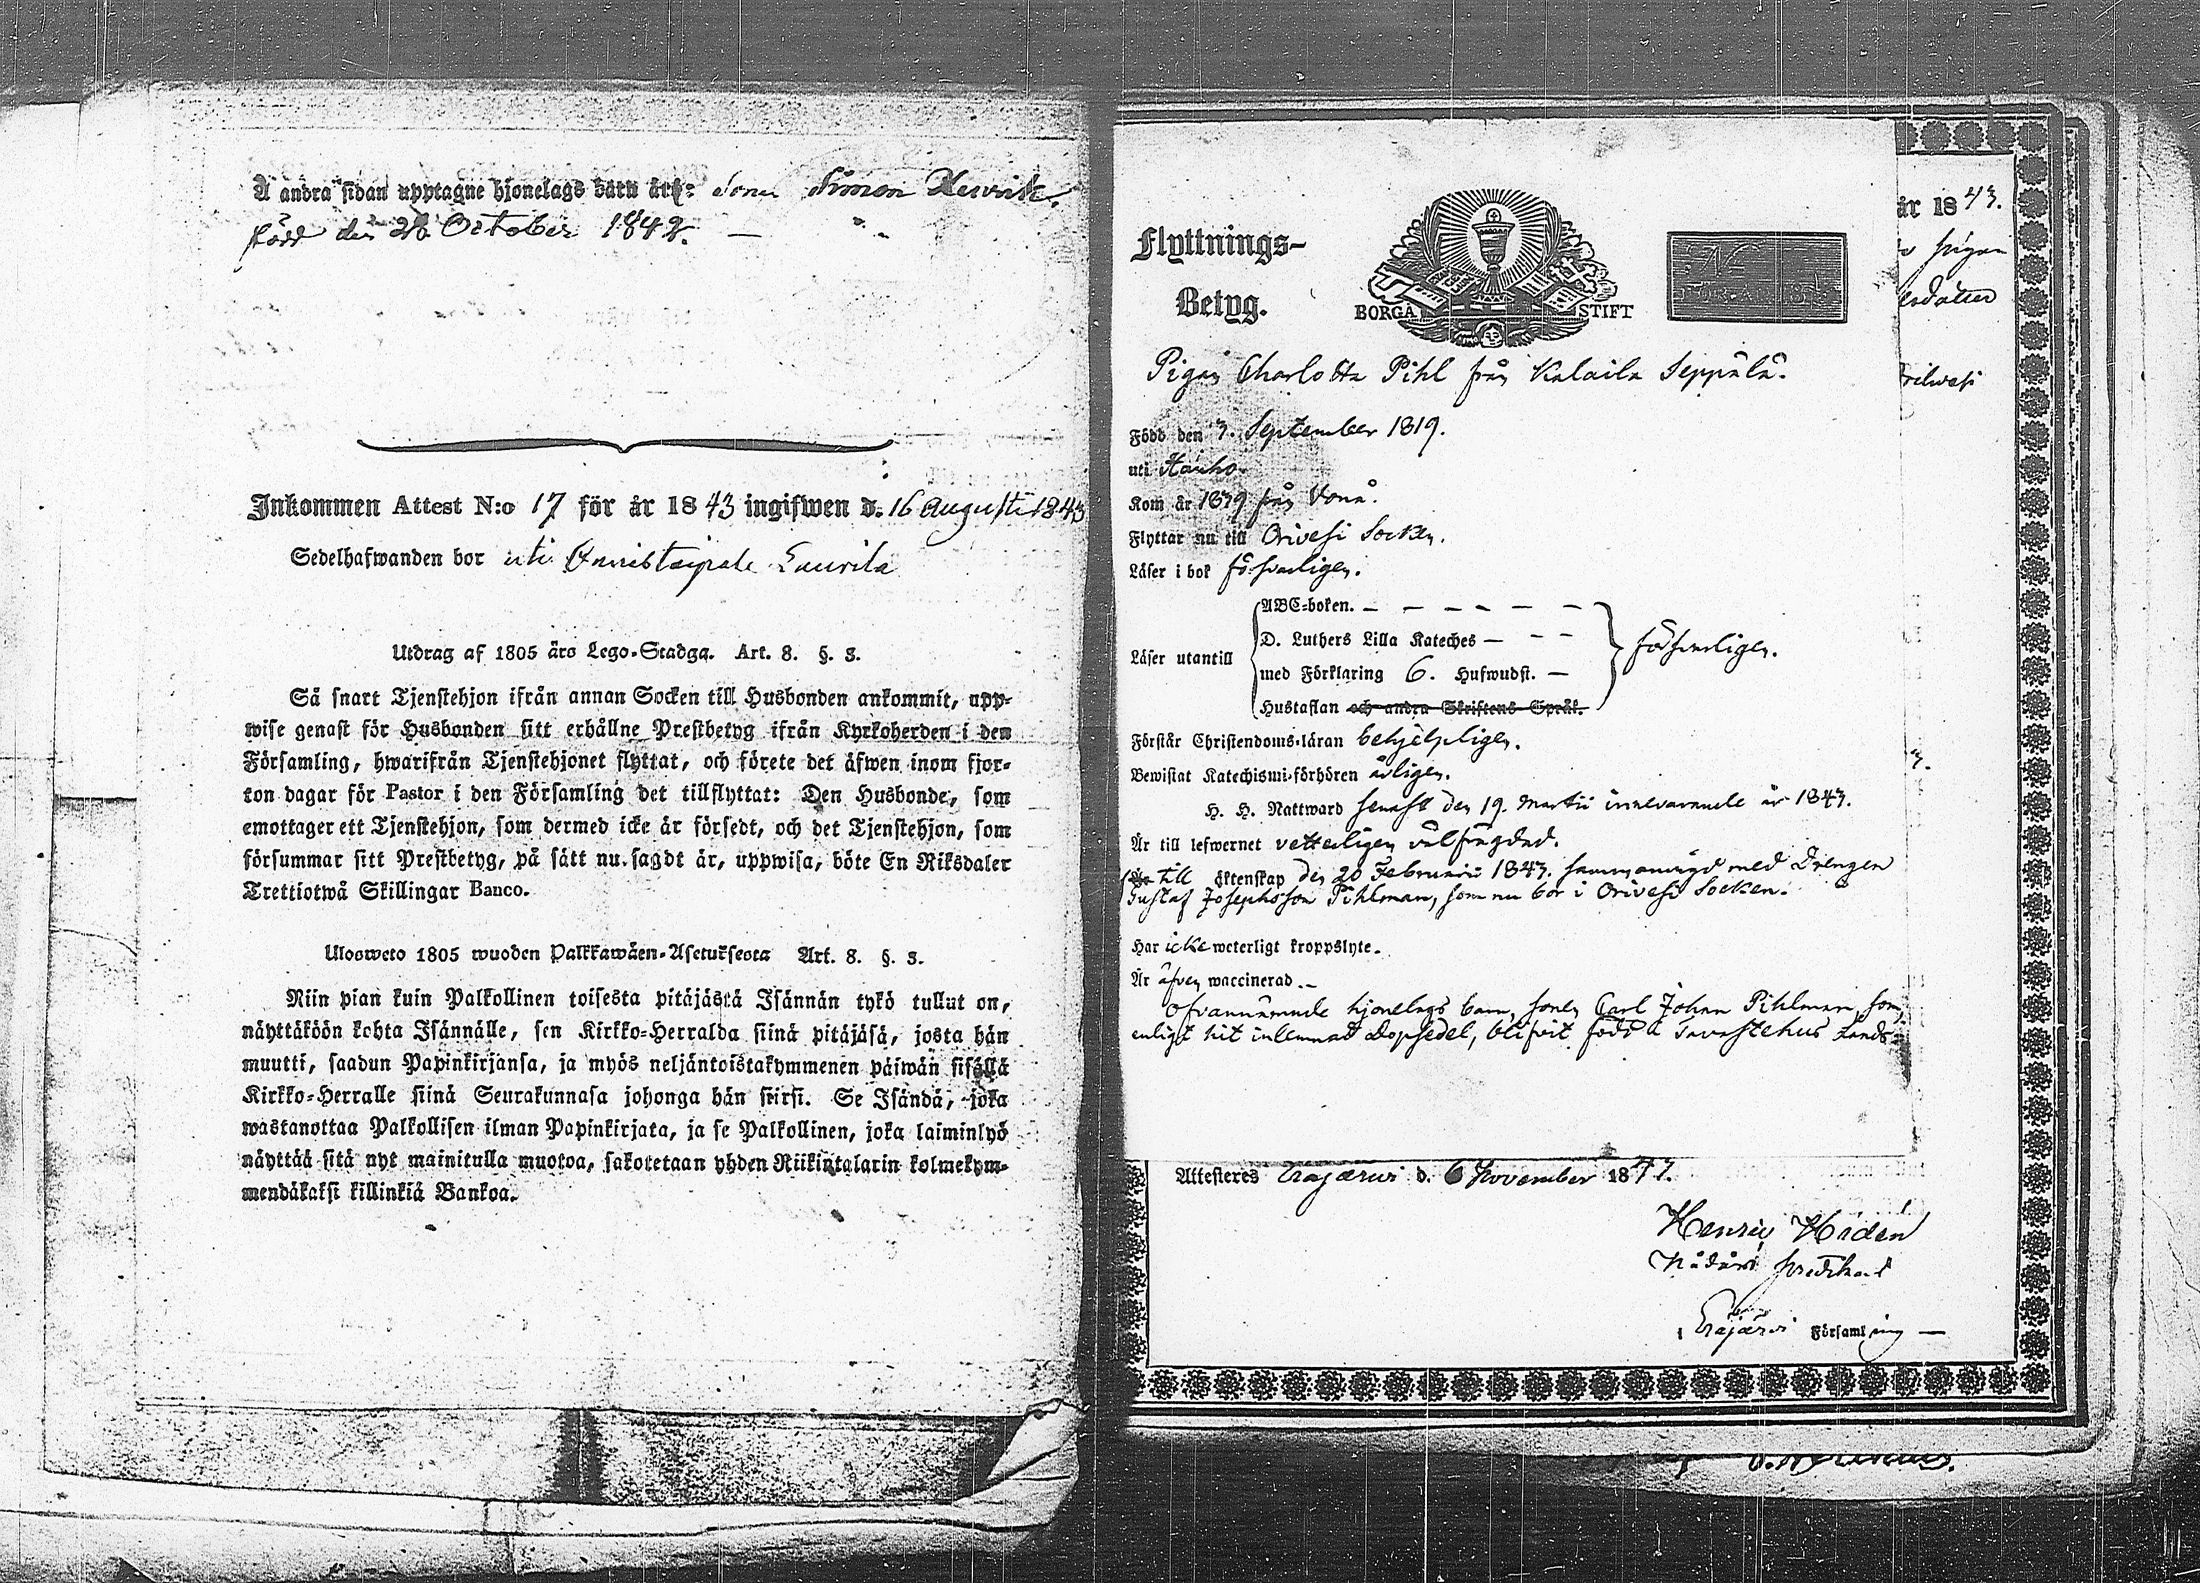 Å andra sidan upptagne hjonelags barn äro: Sonen Simon Henrik,
född den 26 October 1842. —
Inkommen Attest N:o 17 för år 1843 ingifwen d. 16 Augusti 1843
Sedelhafwanden bor uti Laurila
Utdrag af 1805 års Lego-Stadga. Art. 8. §. 3.
Så snart Tjenstehjon ifrån annan Socken till Husbonden ankommit, upp-
wise genast för Husbonden sitt erhållne Prestbetyg ifrån Kyrkoherden i den
Församling, hwarifrån Tjenstehjonet flyttat, och förete det äfwen inom fjor-
ton dagar för Pastor i den Församling det tillflyttat: Den Husbonde, som
emottager ett Tjenstehjon, som dermed icke är försedt, och det Tjenstehjon, som
försummar sitt Prestbetyg, på sätt nu sagdt är, uppwisa, böte En Riksdaler
Trettiotwå Skillingar Banco.
Ulosweto 1805 wuoden Palkkawäen-Asetuksesta Art. 8. §. 3.
Niin pian kuin Palkollinen toisesta pitäjästä Isännän tykö tullut on,
näyttäköön kohta Isännälle, sen Kirkko-Herralda siinä pitäjäsä, josta hän
muutti, saadun Papinkirjansa, ja myös neljäntoistakymmenen päiwän sisällä
Kirkko-Herralle siinä Seurakunnasa johonga hän siirsi. Se Isändä, joka
wastanottaa Palkollisen ilman Papinkirjata, ja se Palkollinen, joka laiminlyö
näyttää sitä nyt mainitulla muotoa, sakotetaan yhden Riikintalarin kolmekym-
mendäkaksi killinkiä Bankoa.
Flyttnings-
Betyg.
BORGÅ STIFT
N
FÖR ÅR 18
Pigan Charlotta Pihl från Kalaila Seppälä.
Född den 3. September 1819.
uti Hauho.
Kom år 1839 från Vånå.
Flyttar nu till Orivesi Socken.
Läser i bok försvarligen.
Läser utantill
ABC-boken. — — — — — —
D. Luthers Lilla Kateches — — —
med Förklaring 6. Hufwudst. —
Hustaflan och andra Skriftens Språk.
försvarligen.
Förstår Christendoms-läran behjelpligen.
Bewistat Katechismi-förhören årligen.
H. H. Nattward senast den 19. Martii innevarande år 1843.
Är till lefwernet vetterligen välfrägdad.
till äktenskap den 20 Februarii 1843. sammanvigd med Drengen
Gustaf Josephsson Pihlman, som nu bor i Orivesi Socken.
Har icke weterligt kroppslyte.
Är äfven waccinerad. —
Ofvannämnde hjonelags barn, sonen Carl Johan Pihlman, som,
enligt hit inlemnad Dopsedel, blifvit född å Tavastehus Lands-
år 1843.
pigan
Attesteres Eräjärwi d. 6 November 1843.
Henric Hedén
Nådårs predikant
i Eräjärvi Församling —